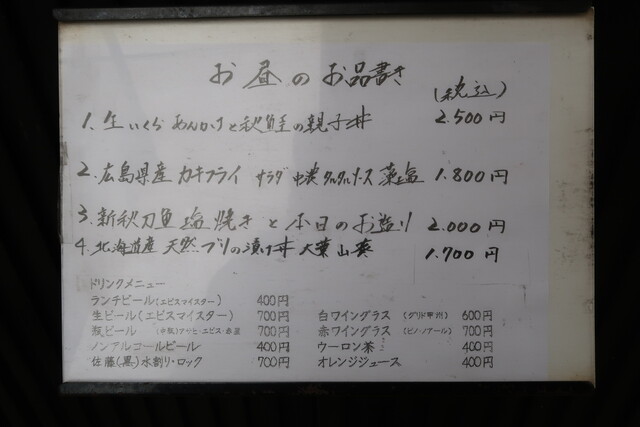 お昼のお品書き
(税込)
1. 生いくらあんかけと秋鮭の親子丼 2.500円
2. 広島県産カキフライ サラダ 中濃 タルタルソース 藻塩 1.800円
3. 新秋刀魚塩焼きと本日のお造り 2.000円
4. 北海道産天然ブリの漬け丼 大葉 山葵 1.700円
ドリンクメニュー
ランチビール(エビスマイスター) 400円
生ビール(エビスマイスター) 700円 白ワイングラス (グリド甲州) 600円
瓶ビール (中瓶)アサヒ・エビス・赤星 700円 赤ワイングラス (ピノ・ノアール) 700円
ノンアルコールビール 400円 ウーロン茶 400円
佐藤(黒)水割り・ロック 700円 オレンジジュース 400円